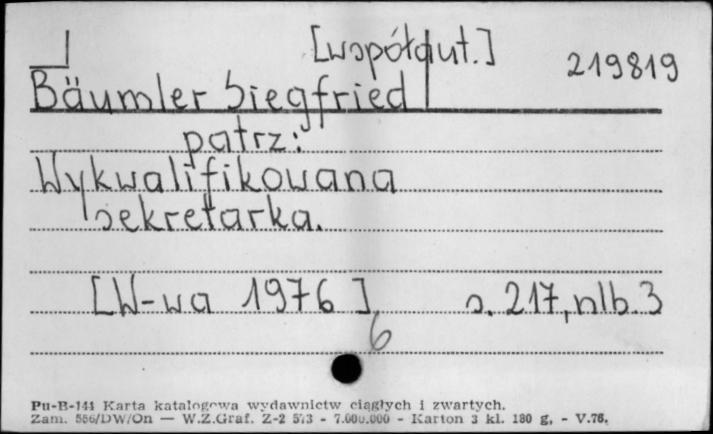 [współaut.] 219819
Bäumler Siegfried
patrz:
Wykwalifikowana
sekretarka.
[W-wa 1976] s. 217, nlb. 3
6
Pu-B-144 Karta katalogowa wydawnictw ciągłych i zwartych.
Zam. 556/DW/On — W.Z.Graf. Z-2 573 - 7.000.000 - Karton 3 kl. 180 g. - V.76.